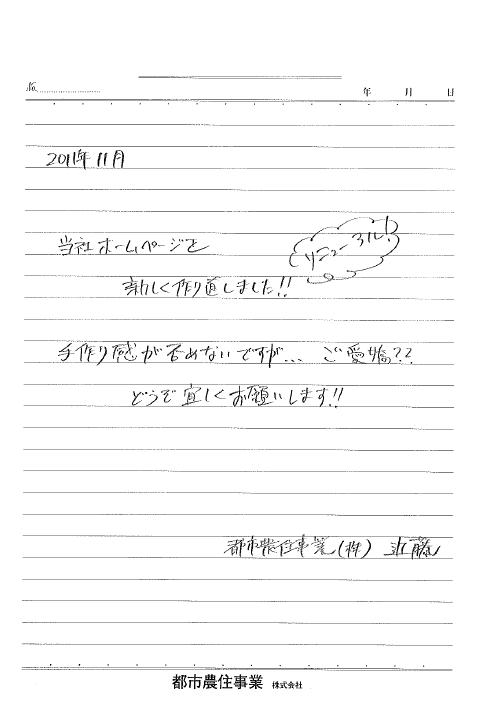 No.
年 月 日
2011年11月
当社ホームページを
リニューアル!
新しく作り直しました!!
手作り感が否めないですが... ご愛嬌??
どうぞ宜しくお願いします!!
都市農住事業(株) 近藤
都市農住事業 株式会社